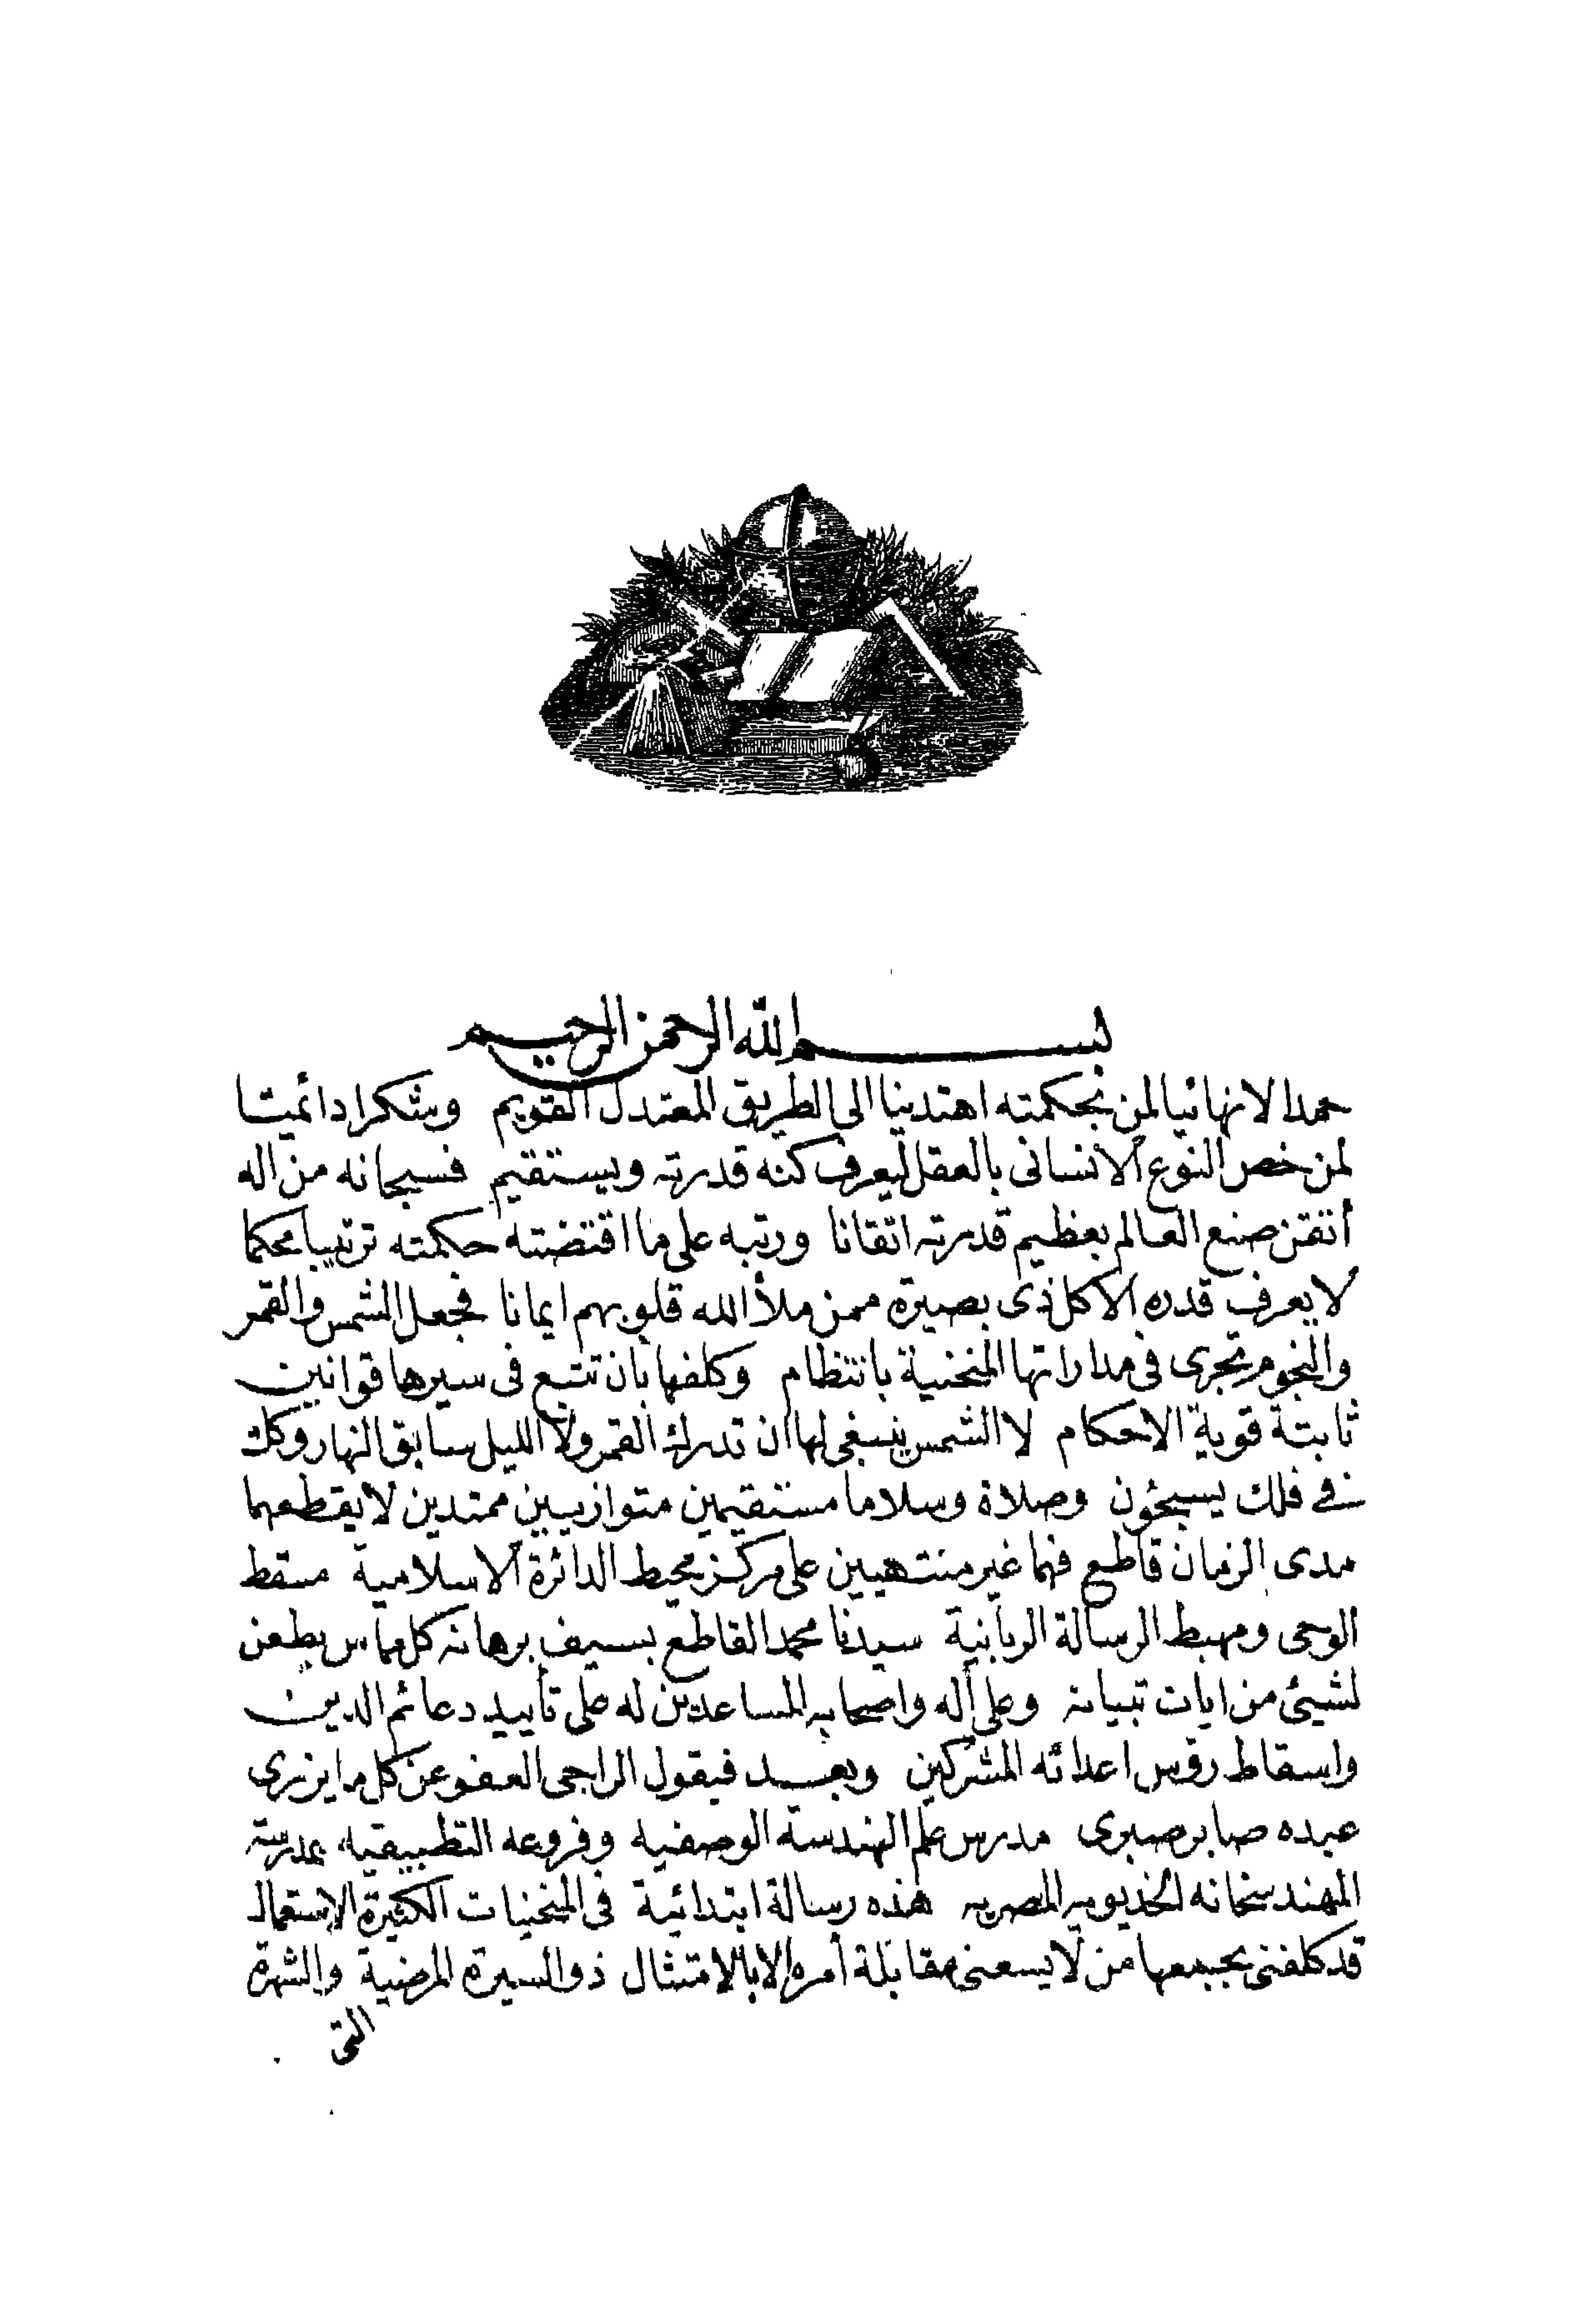 بسم الله الرحمن الرحيم
حمدا لانهائيا لمن بحكمته اهتدينا الى الطريق المعتدل القويم وشكرا دائميا
لمن خص النوع الانسانى بالعقل ليعرف كنه قدرته ويستقيم فسبحانه من اله
أتقن صنع العالم بعظيم قدرته اتقانا ورتبه على ما اقتضته حكمته ترتيبا محكما
لا يعرف قدره الا كل ذى بصيرة ممن ملأ الله قلوبهم ايمانا فجعل الشمس والقمر
والنجوم تجرى فى مداراتها المنحنية بانتظام وكلفها بان تتبع فى سيرها قوانين
ثابتة قوية الاحكام لا الشمس ينبغى لها ان تدرك القمر ولا الليل سابق النهار وكل
فى فلك يسبحون وصلاة وسلاما مستقيمين متوازيين ممتدين لا يقطعهما
مدى الزمان قاطع فهما غير منتهيين على مركز محيط الدائرة الاسلامية مسقط
الوحى ومهبط الرسالة الربانية سيدنا محمد القاطع بسيف برهانه كل مماس يطعن
لشيئ من ايات تبيانه وعلى أله واصحابه المساعدين له على تأييد دعائم الدين
واسقاط رؤس اعدائه المشركين وبعد فيقول الراجى العفو عن كل ما يزرى
عبده صابر صبرى مدرس علم الهندسة الوصفيه وفروعه التطبيقيه بمدرسة
المهندسخانه الخديويه المصريه هذه رسالة ابتدائية فى المنحنيات الكثيرة الاستعمال
قد كلفنى بجمعها من لا يسعنى مقابلة أمره الا بالامتثال ذو السيرة المرضية والشهرة
التى